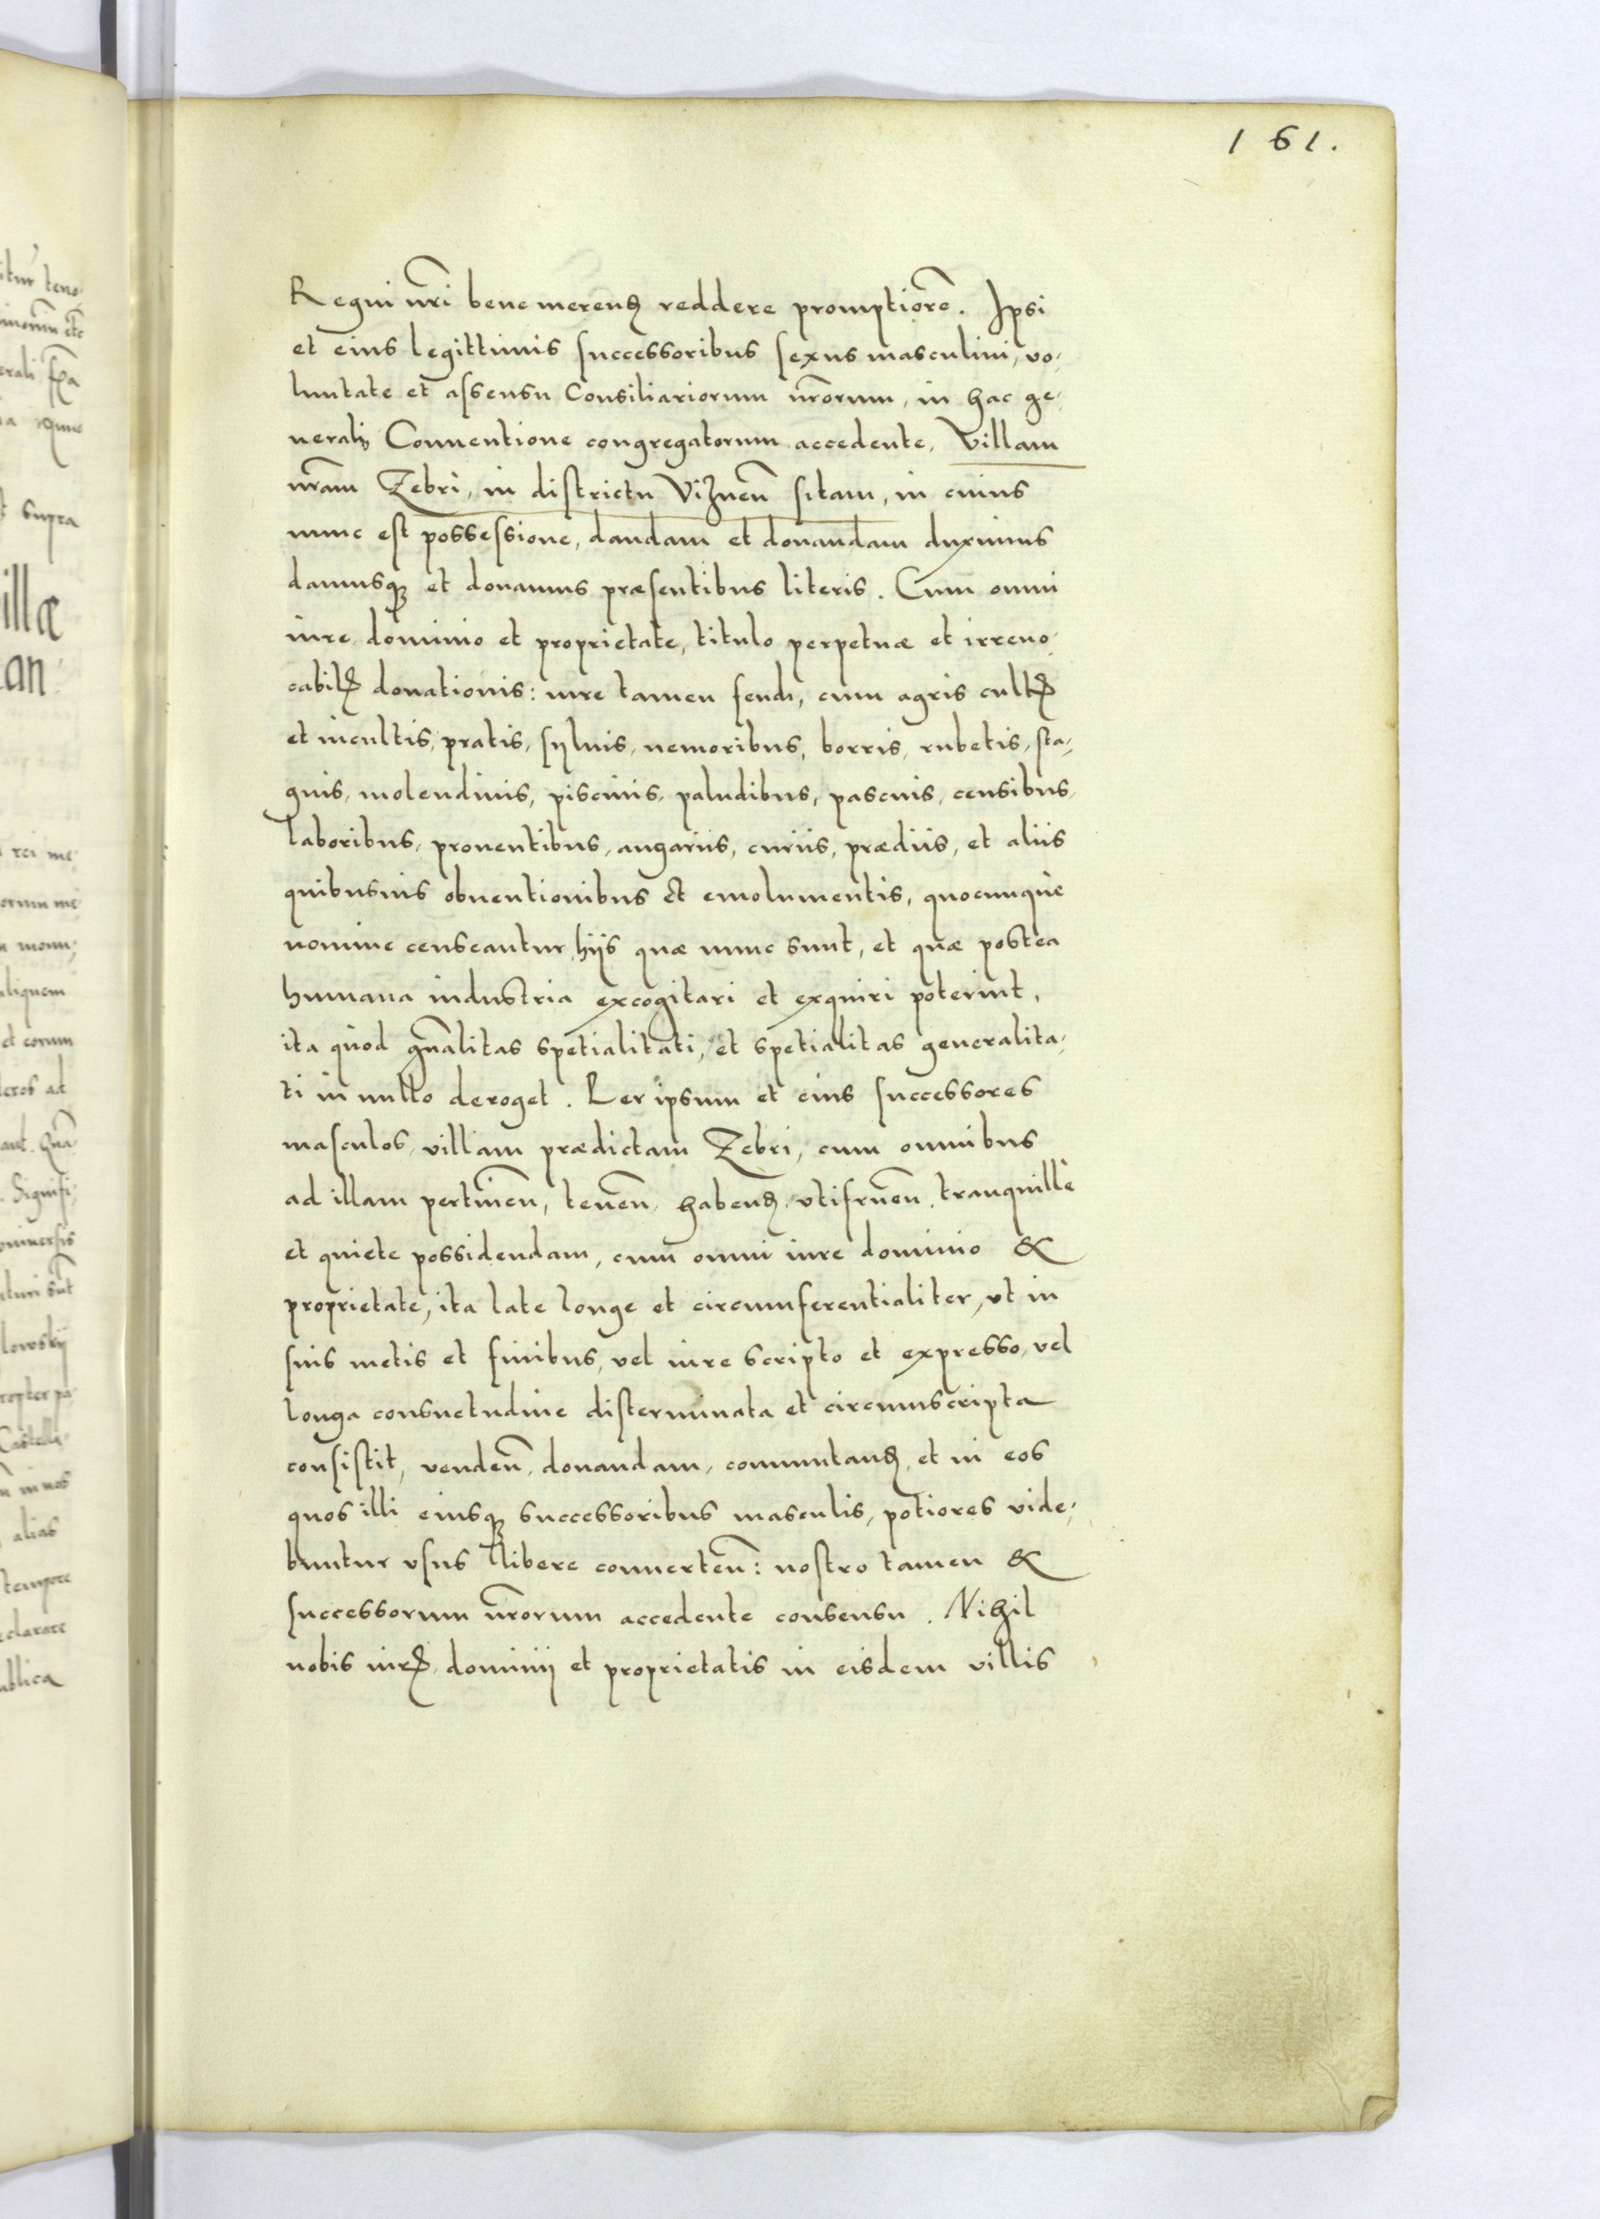 161.
Regni nr̃i bene merend̨ reddere promptiorẽ. Ipsi
et eius legittimis successoribus sexus masculini, vo,
luntate et assensu Consiliariorum nr̃orum, in hac ge,
nerali Conuentione congregatorum accedente, Villam
nr̃am Zebri, in districtu Viznen̄ sitam, in cuius
nunc est possessione, dandam et donandam duximus
damusq̨ et donamus præsentibus literis. Cum omni
iure dominio et proprietate, titulo perpetuæ et irreuo,
cabilꝭ donationis: iure tamen feudi, cum agris cultꝭ
et incultis, pratis, syluis, nemoribus, borris, rubetis, sta,
gnis, molendinis, piscinis, paludibus, pascuis, censibus,
laboribus, prouentibus, angariis, curiis, prædiis, et aliis
quibusuis obuentionibus et emolumentis, quocunque
nomine censeantur, hiis quæ nunc sunt, et quæ postea
humana industria excogitari et exquiri poterint,
ita quòd gn̄alitas spetialitati, et spetialitas generalita,
ti in nullo deroget. Per ipsum et eius successores
masculos, villam prædictam Zebri, cum omnibus
ad illam pertinen̄, tenen̄, habend̨, vtifruen̄, tranquillè
et quiete possidendam, cum omni iure dominio &
proprietate, ita late longe et circumferentialiter, vt in
suis metis et finibus, vel iure scripto et expresso, vel
longa consuetudine disterminata et circumscripta
consistit, venden̄, donandam, commutand̨, et in eos
quos illi eiusq̨ successoribus masculis, potiores vide,
buntur vsus libere conuerten̄: nostro tamen &
successorum nr̃orum accedente consensu. Nihil
nobis iurꝭ, dominij et proprietatis in eisdem villis